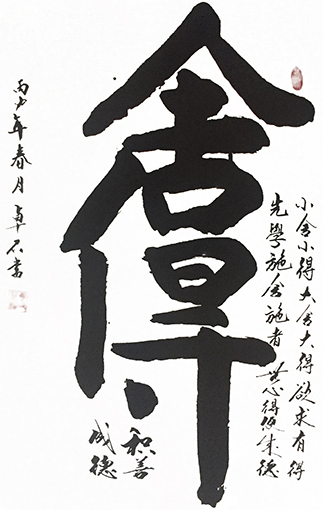 小舍小得大舍大得欲求有得
先學施舍施者無心得便成德
舍得
和善
成德
年春月卓石書